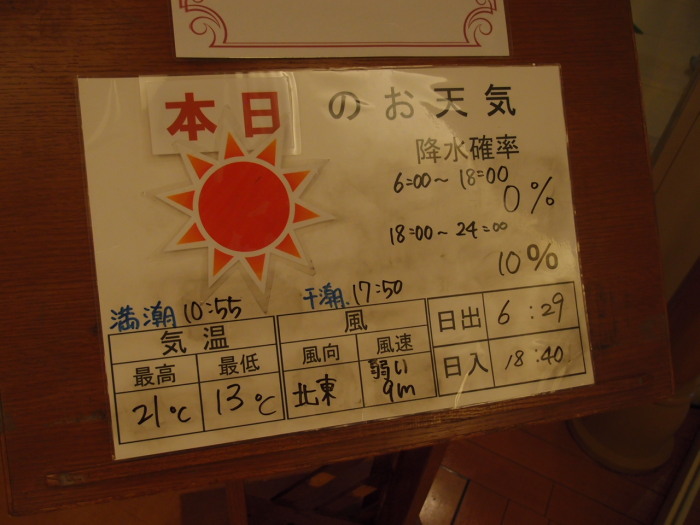 本日 のお天気
降水確率
6:00~18:00
0%
18:00~24:00
10%
満潮 10:55 干潮 17:50
気温 風 日出 6:29
最高 最低 風向 風速 日入 18:40
21℃ 13℃ 北東 弱い
9m